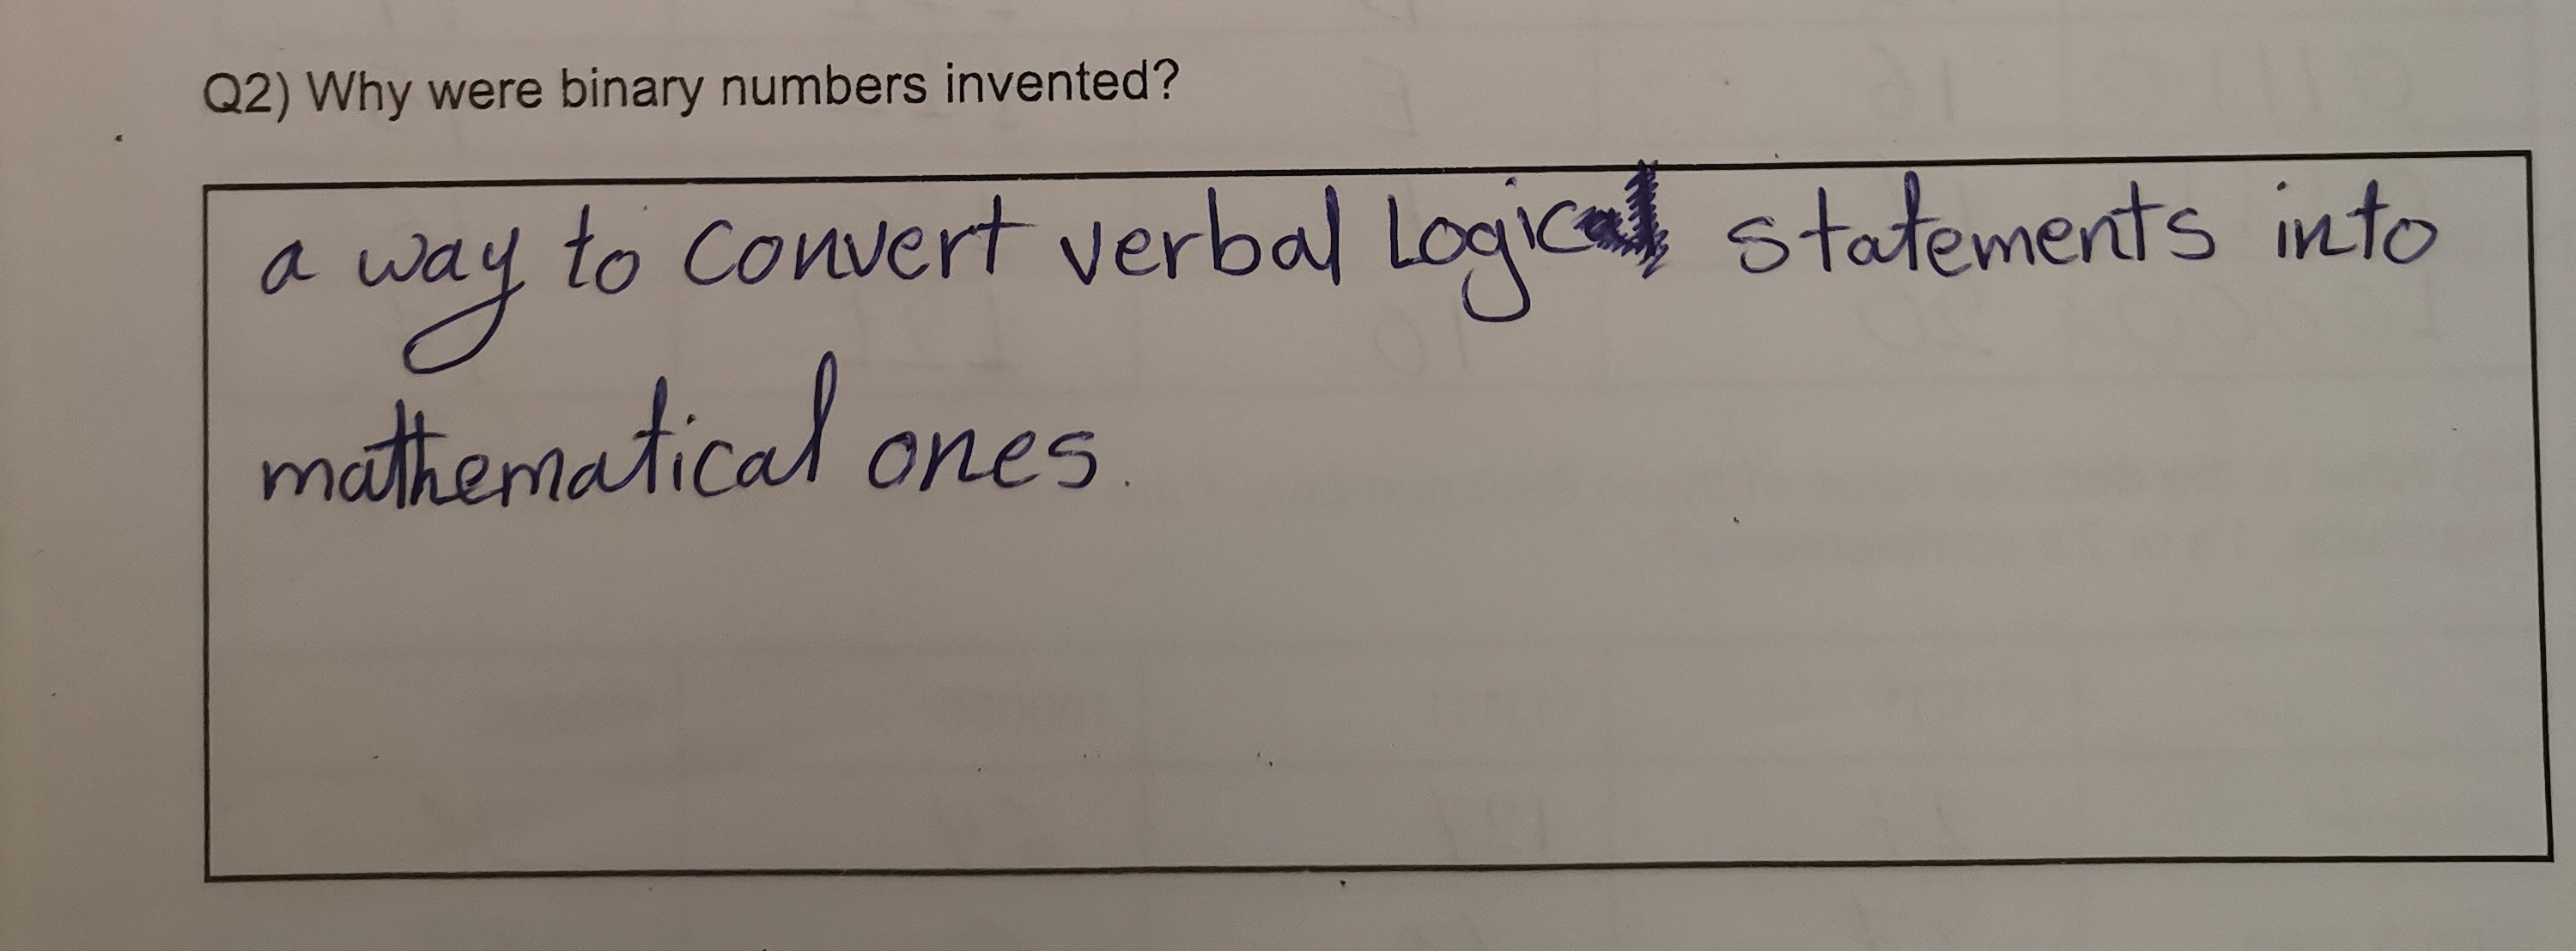 Q2) Why were binary numbers invented?
a way to convert verbal logic statements into
mathematical ones.